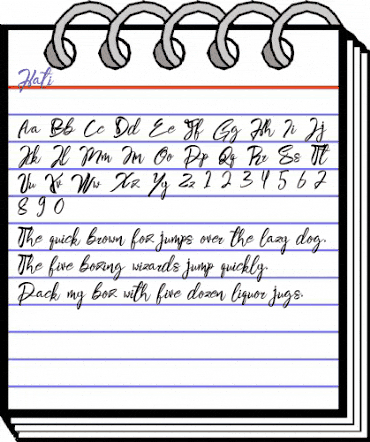 Hati
Aa Bb Cc Dd Ee Ff Gg Hh Ii Jj
Kk Ll Mm Nn Oo Pp Qq Rr Ss Tt
Uu Vv Ww Xx Yy Zz 1 2 3 4 5 6 7
8 9 0
The quick brown fox jumps over the lazy dog.
The five boxing wizards jump quickly.
Pack my box with five dozen liquor jugs.